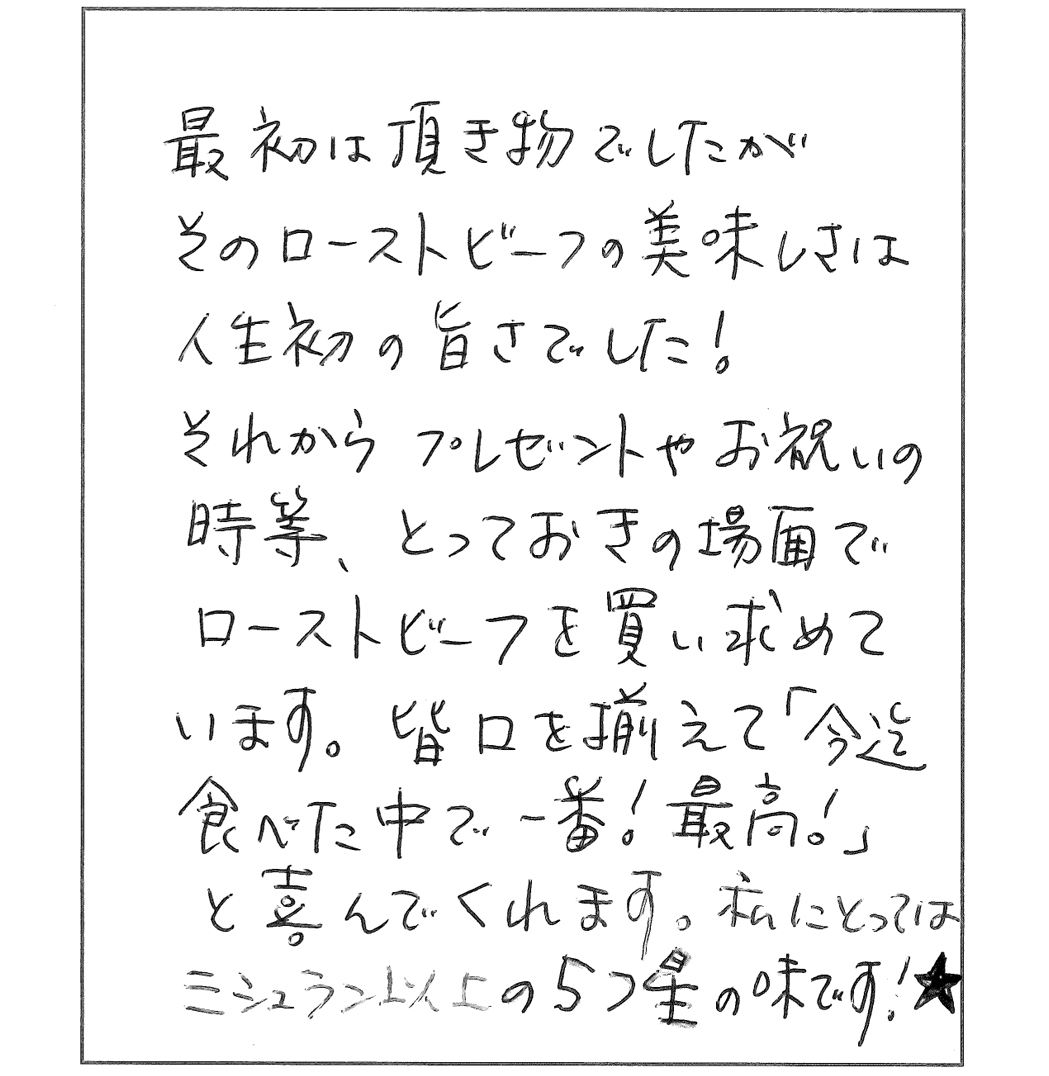 最初は頂き物でしたが
そのローストビーフの美味しさは
人生初の旨さでした!
それからプレゼントやお祝いの
時等、とっておきの場面で
ローストビーフを買い求めて
います。皆口を揃えて「今迄
食べた中で一番!最高!」
と喜んでくれます。私にとっては
ミシュラン以上の5つ星の味です!★